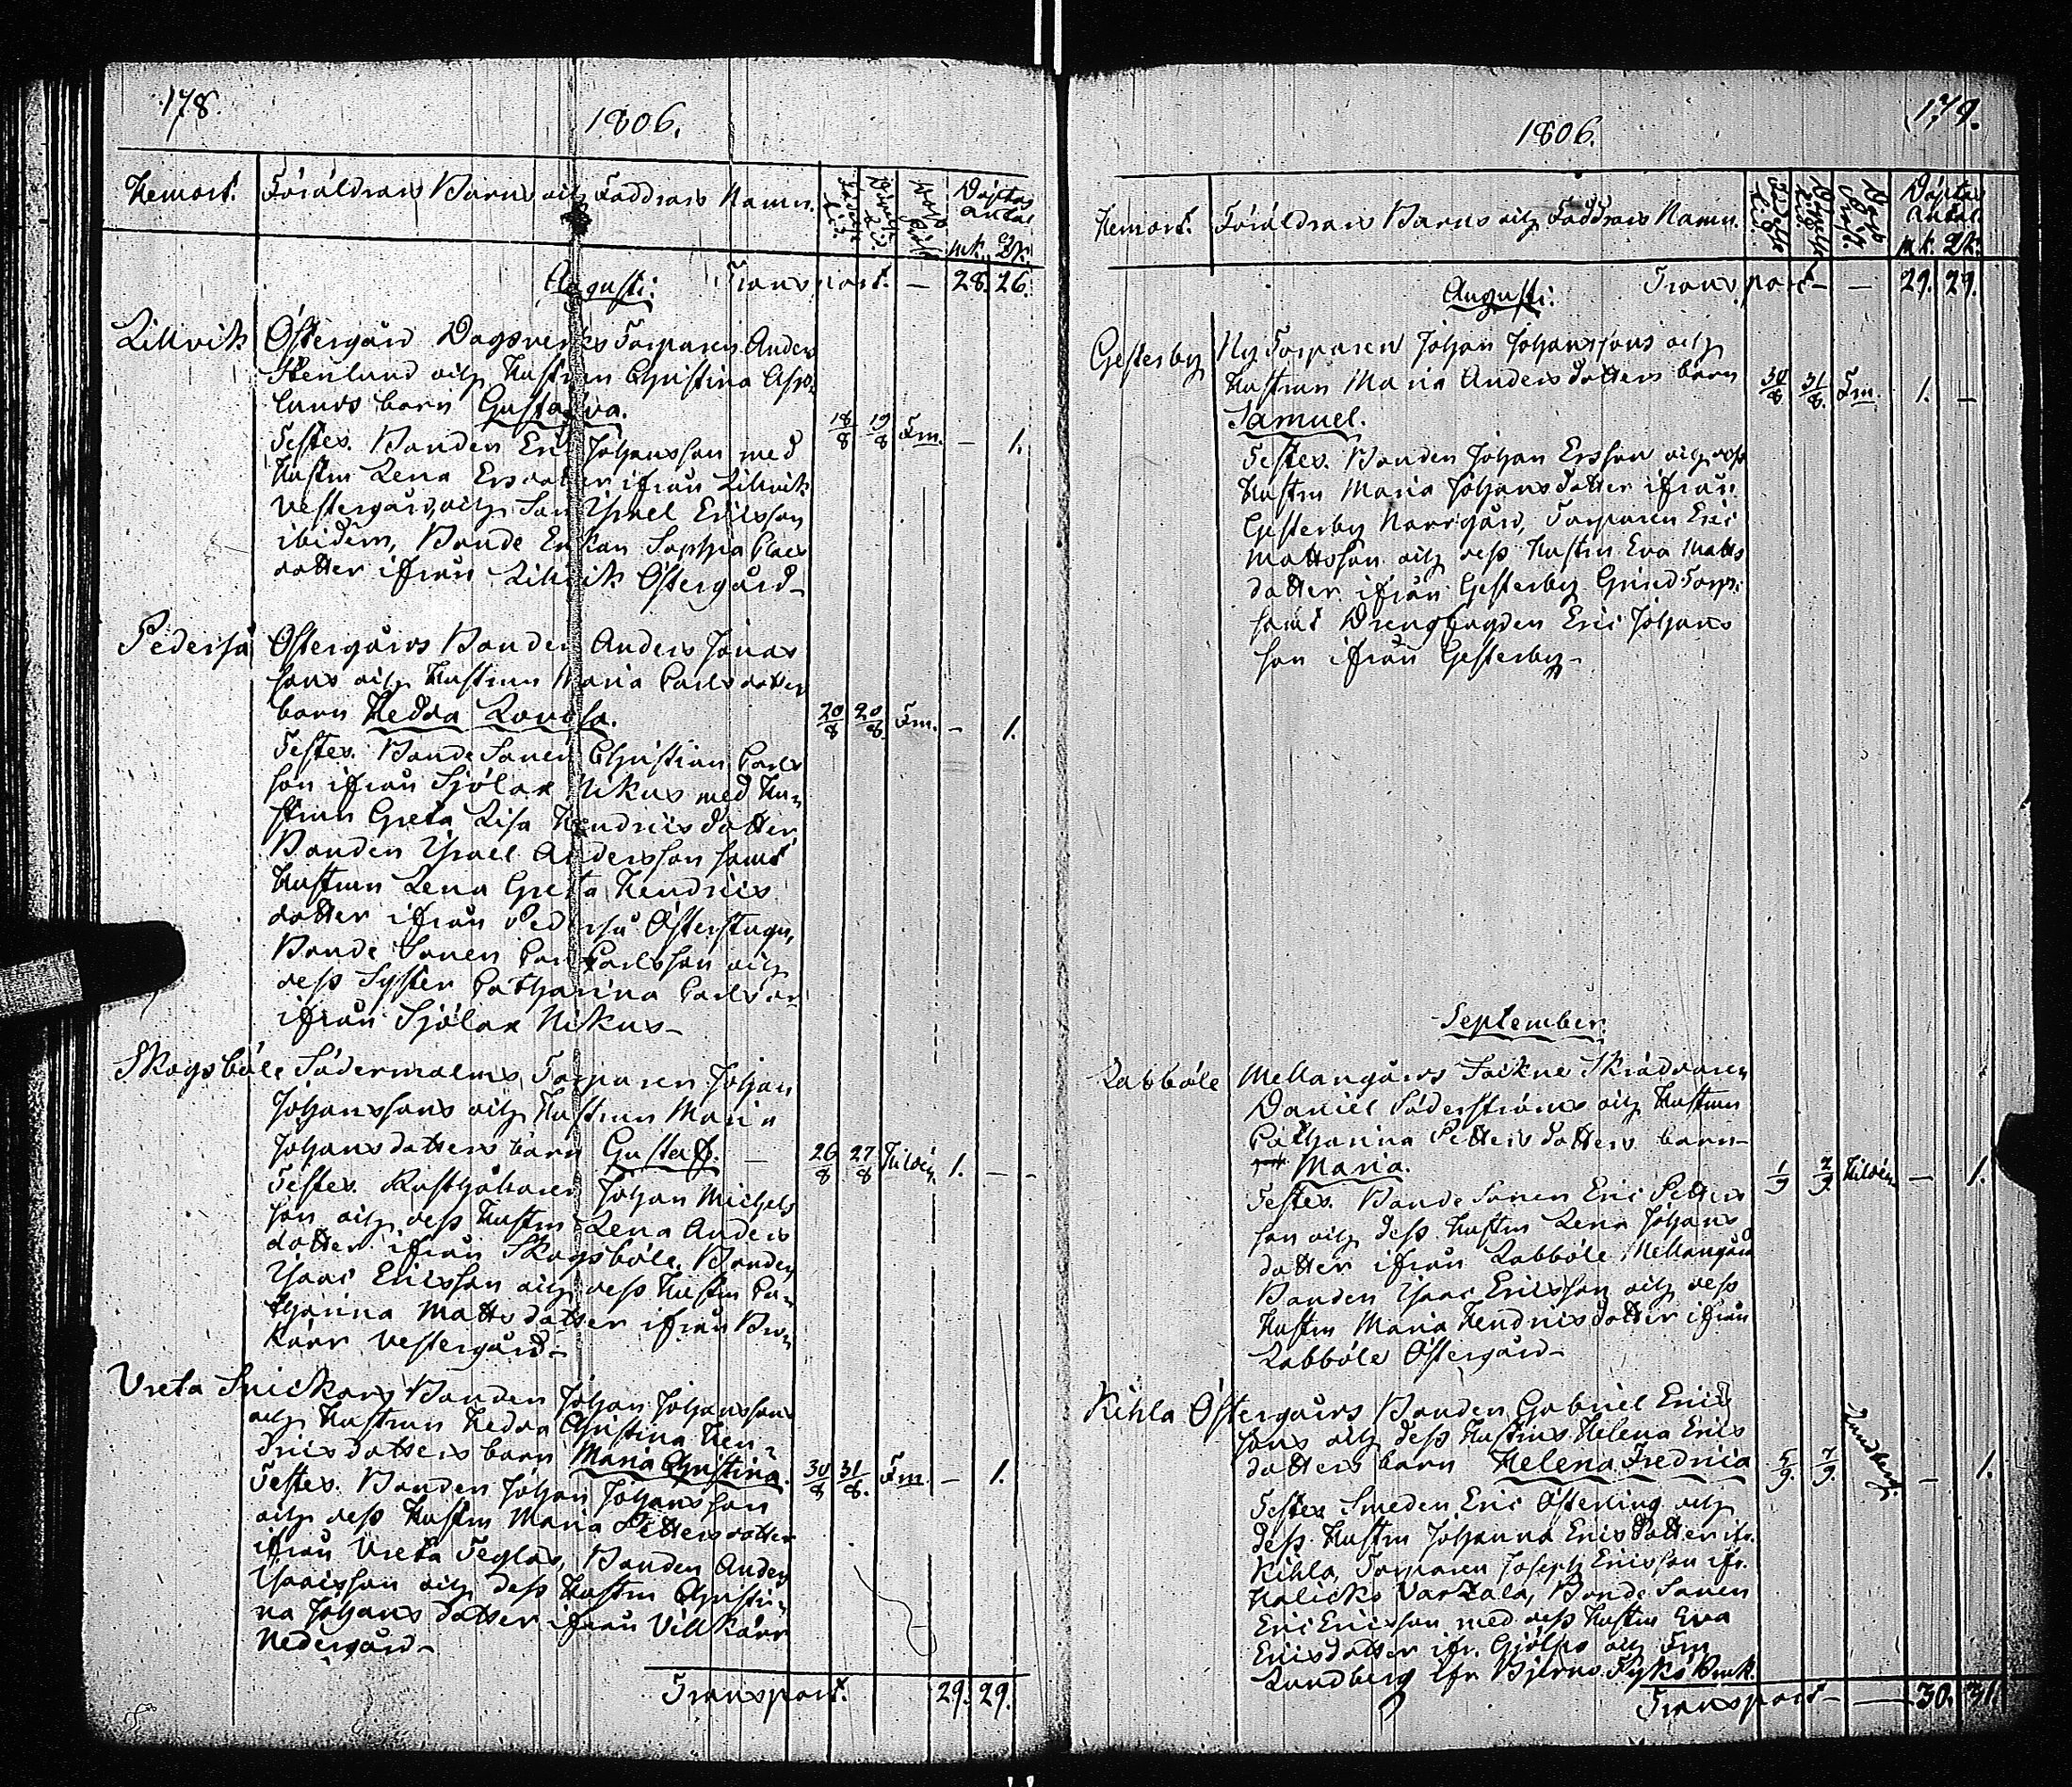 178.
1806.
Hemort. Föräldrars Barns och Faddrars Namn. Födelse tid. Döpelse tid. Döptas antal
mk. Qk.
Augusti. Transport. — 28. 26.
Lillvik Östergård Dagsverks Torparen Anders
Stenlund och Hustrun Christina Asp-
lunds barn Gustava. 18/8 19/8 Fm. — 1.
Testes. Bonden Eric Johansson med
Hustru Lena Ersdotter ifrån Lillvik
Vestergård, och Son Israel Ericsson
ibidem, Bonde Enkan Sophia Claes
dotter ifrån Lillvik Östergård —
Pederså Östergårds Bonden Anders Jonas
sons och Hustrun Maria Carlsdotters
barn Hedda Lovisa. 20/8 20/8 Fm. — 1.
Testes. Bonde Sonen Christian Carls
son ifrån Sjölax Nikus med Hu-
strun Greta Lisa Hendricsdotter
Bonden Israel Andersson samt
Hustrun Lena Greta Hendrics
dotter ifrån Pederså Österstugu,
Bonde Sonen Carl Carlsson och
dess Syster Catharina Carlsdr
ifrån Sjölax Nikus —
Skogsböle Södermalms Torparen Johan
Johanssons och Hustrun Maria
Johansdotters barn Gustaf. — 26/8 27/8 Hildén 1. — -
Testes. Rusthållaren Johan Michels
son och dess Hustru Lena Anders
dotter ifrån Skogsböle, Bonden
Isaac Ericsson och dess Hustru Ca-
tharina Mattsdotter ifrån Bro-
kärr Vestergård —
Vreta Snickars Bonden Johan Johanssons
och Hustrun Hedda Christina Hen-
dricsdotters barn Maria Christina. 30/8 31/8. Fm. — 1.
Testes. Bonden Johan Johansson
och dess Hustru Maria Pettersdotter
ifrån Vreta Teglas, Bonden Anders
Isaacsson och dess Hustru Christi-
na Johansdotter ifrån Villkärr
Nedergård —
Transport. 29. 29.
179.
1806.
Hemort. Föräldrars Barns och Faddrars Namn. Födelse tid. Döpelse tid. Döptas antal
mk. Qk.
Augusti. Transport — — 29. 29.
Gesterby Ny Torparen Johan Johanssons och
Hustrun Maria Andersdotters barn 30/8 31/8. Fm. 1. —
Samuel.
Testes. Bonden Johan Ersson och dess
Hustru Maria Johansdotter ifrån
Gesterby Norrgård, Torparen Eric
Mattsson och dess Hustru Eva Matts
dotter ifrån Gesterby Grind Torp.
samt Drengfogden Eric Johans
son ifrån Gesterby —
September.
Labböle Mellangårds Sockne Skräddaren
Daniel Söderströms och Hustrun
Catharina Pettersdotters barn
Maria. 1/9 2/9. Hildén — 1.
Testes. Bonde Sonen Eric Petters
son och dess Hustru Lena Johans
dotter ifrån Labböle Mellangård
Bonden Isaac Ericsson och dess
Hustru Maria Hendricsdotter ifrån
Labböle Östergård —
Kihla Östergårds Bonden Gabriel Erics
sons och dess Hustrus Helena Erics
dotters barn Helena Fredrica 5/9. 7/9. Lundberg. — 1.
Testes Smeden Eric Österling och
dess Hustru Johanna Ericsdotter ifr.
Kihla, Torparen Joseph Ericsson ifr.
Halicko Vartzala, Bonde Sonen
Eric Ericsson med dess Hustru Eva
Ericsdotter ifr. Gjölps och Fm
Lundberg ifr. Björns. Tykö Bruk.
Transport — — 30. 31.